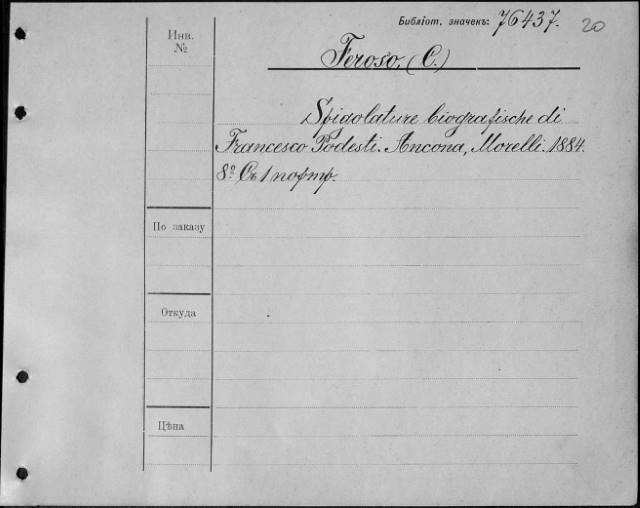 Библіот. значекъ: 76437. 20
Инв.
№
Feroso. (C.)
Spigolature biografische di
Francesco Podesti. Ancona, Morelli. 1884.
8º Съ 1 портр.
По заказу
Откуда
Цѣна